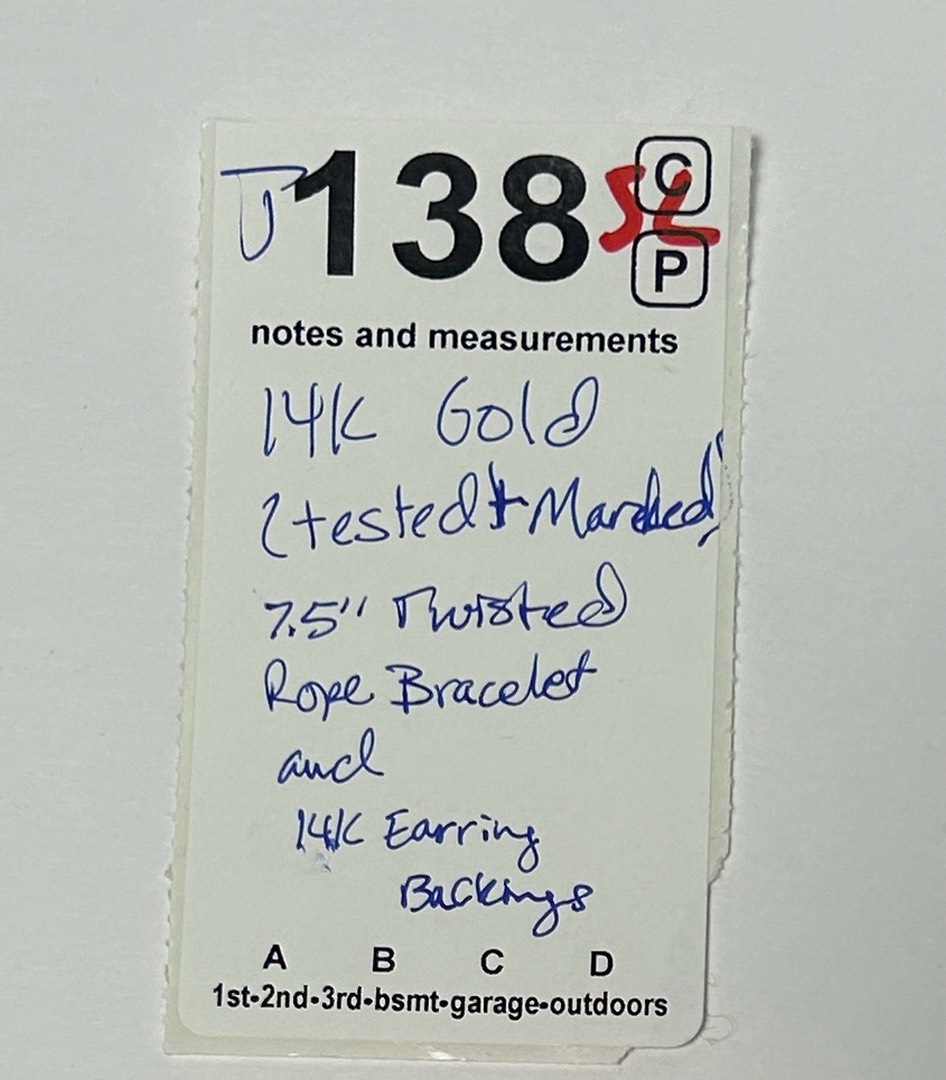 J138 SL C
P
notes and measurements
14K Gold
(tested + Marked)
7.5" Twisted
Rope Bracelet
and
14K Earring
Backings
A B C D
1st-2nd-3rd-bsmt-garage-outdoors